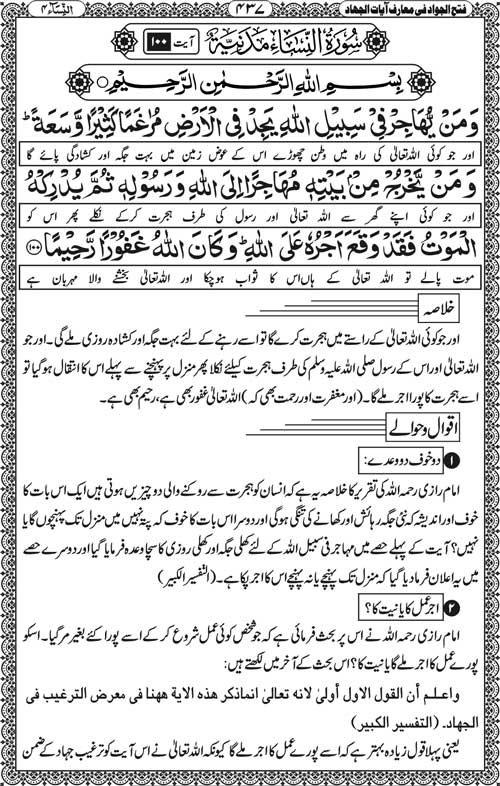 فتح الجواد فی معارف آیات الجهاد ۴۳۷ النِّسَآء ۴
سُوْرَةُ النِّسَاءِ مَدَنِيَّةٌ آیت ۱۰۰
بِسْمِ اللهِ الرَّحْمٰنِ الرَّحِيْمِ
وَمَنْ يُّهَاجِرْ فِيْ سَبِيْلِ اللهِ يَجِدْ فِي الْاَرْضِ مُرٰغَمًا كَثِيْرًا وَّسَعَةً ؕ
اور جو کوئی اللہ تعالیٰ کی راہ میں وطن چھوڑے اس کے عوض زمین میں بہت جگہ اور کشادگی پائے گا
وَمَنْ يَّخْرُجْ مِنْۢ بَيْتِهٖ مُهَاجِرًا اِلَى اللهِ وَرَسُوْلِهٖ ثُمَّ يُدْرِكْهُ
اور جو کوئی اپنے گھر سے اللہ تعالیٰ اور رسول کی طرف ہجرت کرکے نکلے پھر اس کو
الْمَوْتُ فَقَدْ وَقَعَ اَجْرُهٗ عَلَى اللهِ ؕ وَكَانَ اللهُ غَفُوْرًا رَّحِيْمًا ۱۰۰
موت پالے تو اللہ تعالیٰ کے ہاں اس کا ثواب ہوچکا اور اللہ تعالیٰ بخشنے والا مہربان ہے
خلاصہ
اور جو کوئی اللہ تعالیٰ کے راستے میں ہجرت کرے گا تو اسے رہنے کے لئے بہت جگہ اور کشادہ روزی ملے گی۔ اور جو
اللہ تعالیٰ اور اس کے رسول صلی اللہ علیہ وسلم کی طرف ہجرت کیلئے نکلا پھر منزل پر پہنچنے سے پہلے اس کا انتقال ہو گیا تو
اسے ہجرت کا پورا اجر ملے گا۔ (اور مغفرت اور رحمت بھی کہ) اللہ تعالیٰ غفور بھی ہے، رحیم بھی ہے۔
اقوال و حوالے
۱ دو خوف دو وعدے:
امام رازی رحمہ اللہ کی تقریر کا خلاصہ یہ ہے کہ انسان کو ہجرت سے روکنے والی دو چیزیں ہوتی ہیں ایک اس بات کا
خوف اور اندیشہ کہ نئی جگہ رہائش اور کھانے کی تنگی ہوگی اور دوسرا اس بات کا خوف کہ پتہ نہیں میں منزل تک پہنچوں گا یا
نہیں؟ آیت کے پہلے حصے میں مہاجر فی سبیل اللہ کے لئے کھلی جگہ اور کھلی روزی کا سچا وعدہ فرمایا گیا اور دوسرے حصے
میں یہ اعلان فرما دیا گیا کہ منزل تک پہنچے یا نہ پہنچے اس کا اجر پکا ہے۔ (التفسیر الکبیر)
۲ اجر عمل کا یا نیت کا؟
امام رازی رحمہ اللہ نے اس پر بحث فرمائی ہے کہ جو شخص کوئی عمل شروع کرکے اسے پورا کئے بغیر مر گیا۔ اسکو
پورے عمل کا اجر ملے گا یا نیت کا؟ اس بحث کے آخر میں لکھتے ہیں:
واعلم أن القول الاول أولیٰ لانه تعالیٰ انماذكر هذه الاية ههنا فی معرض الترغیب فی
الجهاد. (التفسير الكبير)
یعنی پہلا قول زیادہ بہتر ہے کہ اسے پورے عمل کا اجر ملے گا کیونکہ اللہ تعالیٰ نے اس آیت کو ترغیب جہاد کے ضمن